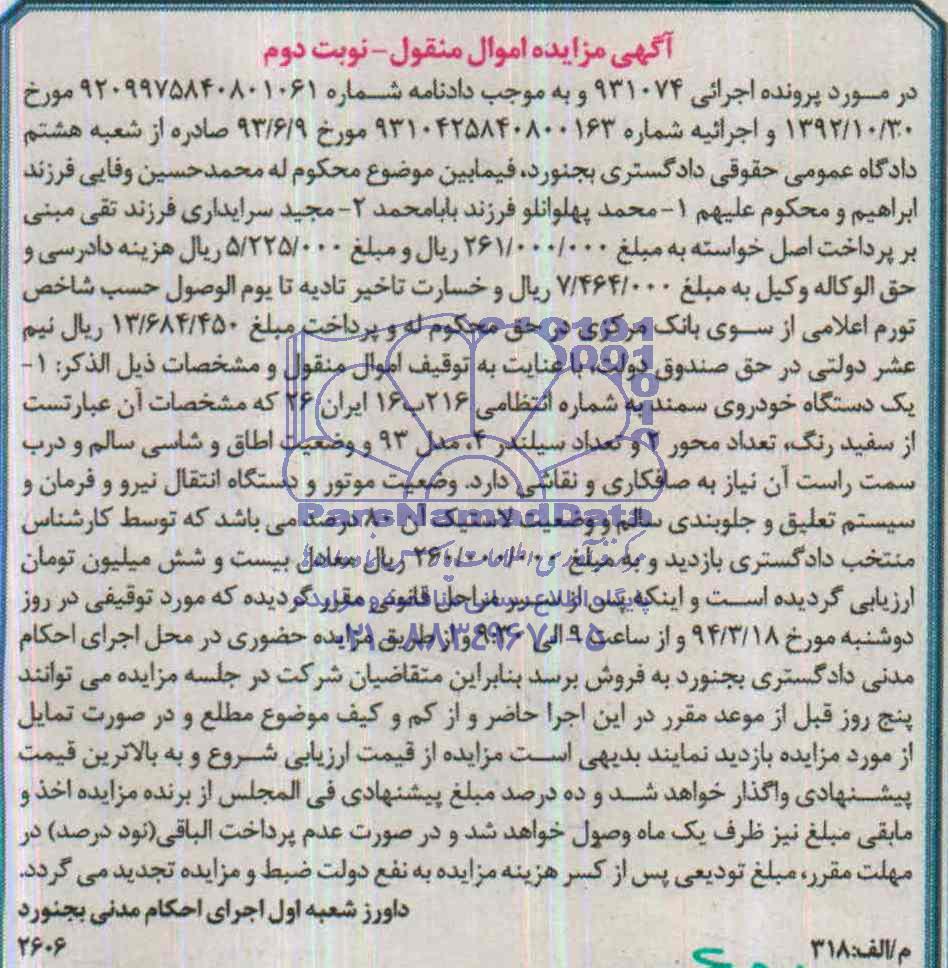 آگهی مزایده اموال منقول - نوبت دوم
در مورد پرونده اجرائی ۹۳۱۰۷۴ و به موجب دادنامه شماره ۹۲۰۹۹۷۵۸۴۰۸۰۱۰۶۱ مورخ
۱۳۹۲/۱۰/۳۰ و اجرائیه شماره ۹۳۱۰۴۲۵۸۴۰۸۰۰۱۶۳ مورخ ۹۳/۶/۹ صادره از شعبه هشتم
دادگاه عمومی حقوقی دادگستری بجنورد، فیمابین موضوع محکوم له محمدحسین وفایی فرزند
ابراهیم و محکوم علیهم ۱- محمد پهلوانلو فرزند بابامحمد ۲- مجید سرایداری فرزند تقی مبنی
بر پرداخت اصل خواسته به مبلغ ۲۶۱/۰۰۰/۰۰۰ ریال و مبلغ ۵/۲۲۵/۰۰۰ ریال هزینه دادرسی و
حق الوکاله وکیل به مبلغ ۷/۴۶۴/۰۰۰ ریال و خسارت تاخیر تادیه تا یوم الوصول حسب شاخص
تورم اعلامی از سوی بانک مرکزی در حق محکوم له و پرداخت مبلغ ۱۳/۶۸۴/۴۵۰ ریال نیم
عشر دولتی در حق صندوق دولت، با عنایت به توقیف اموال منقول و مشخصات ذیل الذکر: ۱-
یک دستگاه خودروی سمند به شماره انتظامی ۲۱۶ب۱۶ ایران ۲۶ که مشخصات آن عبارتست
از سفید رنگ، تعداد محور ۲ و تعداد سیلندر ۴، مدل ۹۳ و وضعیت اطاق و شاسی سالم و درب
سمت راست آن نیاز به صافکاری و نقاشی دارد. وضعیت موتور و دستگاه انتقال نیرو و فرمان و
سیستم تعلیق و جلوبندی سالم و وضعیت لاستیک آن ۸۰ درصد می باشد که توسط کارشناس
ParsNamadData
منتخب دادگستری بازدید و به مبلغ ۲۶۰/۰۰۰/۰۰۰ ریال معادل بیست و شش میلیون تومان
ارزیابی گردیده است و اینکه پس از سیر مراحل قانونی مقرر گردیده که مورد توقیفی در روز
دوشنبه مورخ ۹۴/۳/۱۸ و از ساعت ۹ الی ۹:۳۰ و از طریق مزایده حضوری در محل اجرای احکام
۰۲۱-۸۸۳۴۹۶۷۰-۵
مدنی دادگستری بجنورد به فروش برسد بنابراین متقاضیان شرکت در جلسه مزایده می توانند
پنج روز قبل از موعد مقرر در این اجرا حاضر و از کم و کیف موضوع مطلع و در صورت تمایل
از مورد مزایده بازدید نمایند بدیهی است مزایده از قیمت ارزیابی شروع و به بالاترین قیمت
پیشنهادی واگذار خواهد شد و ده درصد مبلغ پیشنهادی فی المجلس از برنده مزایده اخذ و
مابقی مبلغ نیز ظرف یک ماه وصول خواهد شد و در صورت عدم پرداخت الباقی(نود درصد) در
مهلت مقرر، مبلغ تودیعی پس از کسر هزینه مزایده به نفع دولت ضبط و مزایده تجدید می گردد.
داورز شعبه اول اجرای احکام مدنی بجنورد
م/الف:۳۱۸
۲۶۰۶